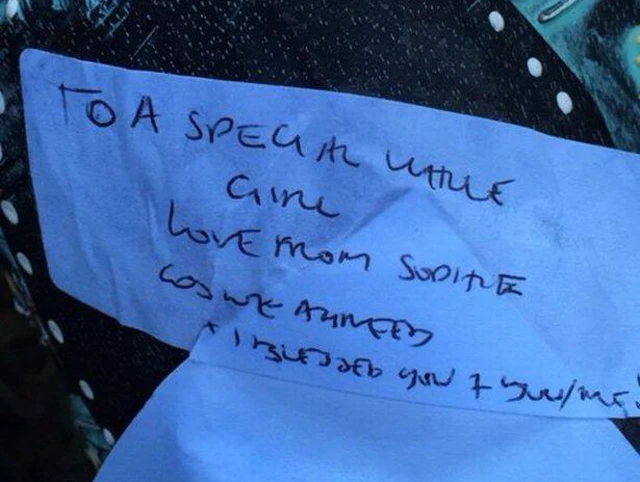 TO A SPECIAL LITTLE
GIRL
LOVE FROM SODITEE
COS WE AGREED
+ I BLESSED YOU + YOU/ME!